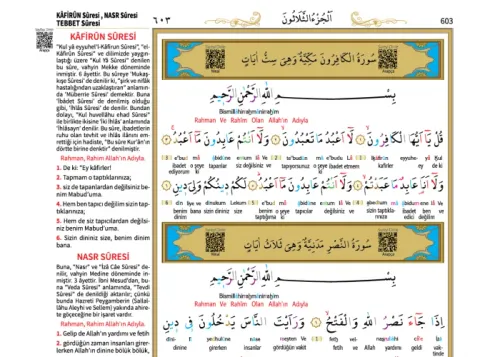 KÂFİRÛN Sûresi , NASR Sûresi
TEBBET Sûresi
٦٠٣
اَلْجُزْءُ الثَّلَاثُونَ
603
KÂFİRÛN SÛRESİ
"Kul yâ eyyuhel'i-Kâfirun Sûresi", "el-
Kâfirûn Sûresi" ve dilimizde yaygın-
laştığı üzere "Kul Yâ Sûresi" denilen
bu sûre, vahyin Mekke döneminde
inmiştir. 6 âyettir. Bu sûreye 'Mukaş-
kışe Sûresi' de denilir ki, "şirk ve nifâk
hastalığından uzaklaştıran" anlamın-
da 'Müberrie Sûresi' demektir. Buna
'İbâdet Sûresi' de denilmiş olduğu
gibi, 'İhlâs Sûresi' de denilir. Bundan
dolayı, "Kul huvellâhu ehad Sûresi"
ile birlikte ikisine 'iki ihlâs' anlamında
'İhlâsayn' denilir. Bu sûre, ibadetlerin
ruhu olan tevhit ve ihlâs ilânını em-
rettiği için hadiste, "Bu sûre Kur'ân'ın
dörtte birine denktir" denilmiştir.
Rahman, Rahim Allah'ın Adıyla.
1. De ki: "Ey kâfirler!
2. Tapmam o taptıklarınıza;
3. siz de tapanlardan değilsiniz be-
nim Mabud'uma.
4. Hem ben tapıcı değilim sizin tap-
tıklarınıza;
5. Hem de siz tapıcılardan değilsi-
niz benim Mabud'uma.
6. Sizin dininiz size, benim dinim
bana.
NASR SÛRESİ
Buna, "Nasr" ve "İzâ Câe Sûresi" de-
nilir, vahyin Medine döneminde in-
miştir. 3 âyettir. İbni Mesud'dan, bu-
na "Veda Sûresi" anlamında, "Tevdî
Sûresi" de denildiği aktarılır; çünkü
bunda Hazreti Peygamberin (Sallal-
lâhu Aleyhi ve Sellem) yakında ahire-
te göçeceğine bir işaret vardır.
Rahman, Rahim Allah'ın Adıyla.
1. Gelip de Allah'ın yardımı ve fetih
2. gördüğün zaman insanları girer-
lerken Allah'ın dinine bölük bölük,
سُورَةُ الْكَافِرُونَ مَكِّيَّةٌ وَهِيَ سِتُّ اٰيَاتٍ
بِسْمِ اللّٰهِ الرَّحْمٰنِ الرَّحِيمِ
Bismillâhirrahmânirrahîm
Rahman Ve Rahim Olan Allah'ın Adıyla
قُلْ يَٓا اَيُّهَا الْكَافِرُونَ ﴿١﴾ لَٓا اَعْبُدُ مَا تَعْبُدُونَ ﴿٢﴾ وَلَٓا اَنْتُمْ عَابِدُونَ مَٓا اَعْبُدُ ﴿٣﴾
وَلَٓا اَنَا۬ عَابِدٌ مَا عَبَدْتُمْ ﴿٤﴾ وَلَٓا اَنْتُمْ عَابِدُونَ مَٓا اَعْبُدُ ﴿٥﴾ لَكُمْ دِينُكُمْ وَلِيَ دِينِ ﴿٦﴾
سُورَةُ النَّصْرِ مَدَنِيَّةٌ وَهِيَ ثَلَاثُ اٰيَاتٍ
بِسْمِ اللّٰهِ الرَّحْمٰنِ الرَّحِيمِ
Bismillâhirrahmânirrahîm
Rahman Ve Rahim Olan Allah'ın Adıyla
اِذَا جَٓاءَ نَصْرُ اللّٰهِ وَالْفَتْحُ ﴿١﴾ وَرَاَيْتَ النَّاسَ يَدْخُلُونَ فِي دِينِ